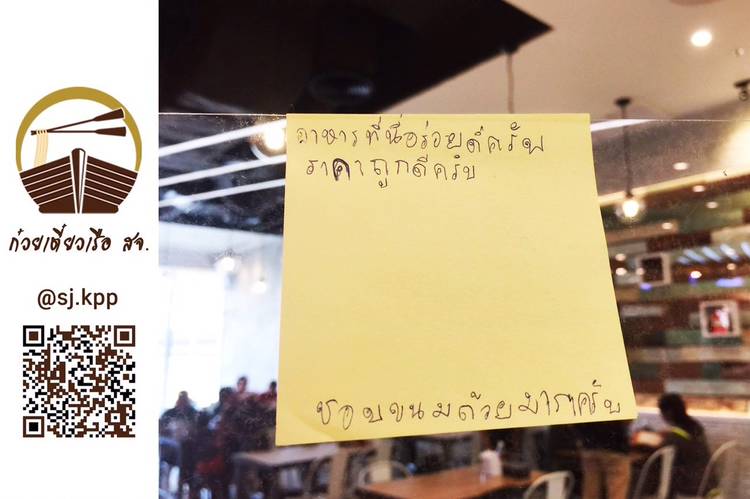 ก๋วยเตี๋ยวเรือ สจ.
@sj.kpp
อาหารที่นี่อร่อยดีครับ
ราคาถูกดีครับ
ชอบขนมถ้วยมากครับ